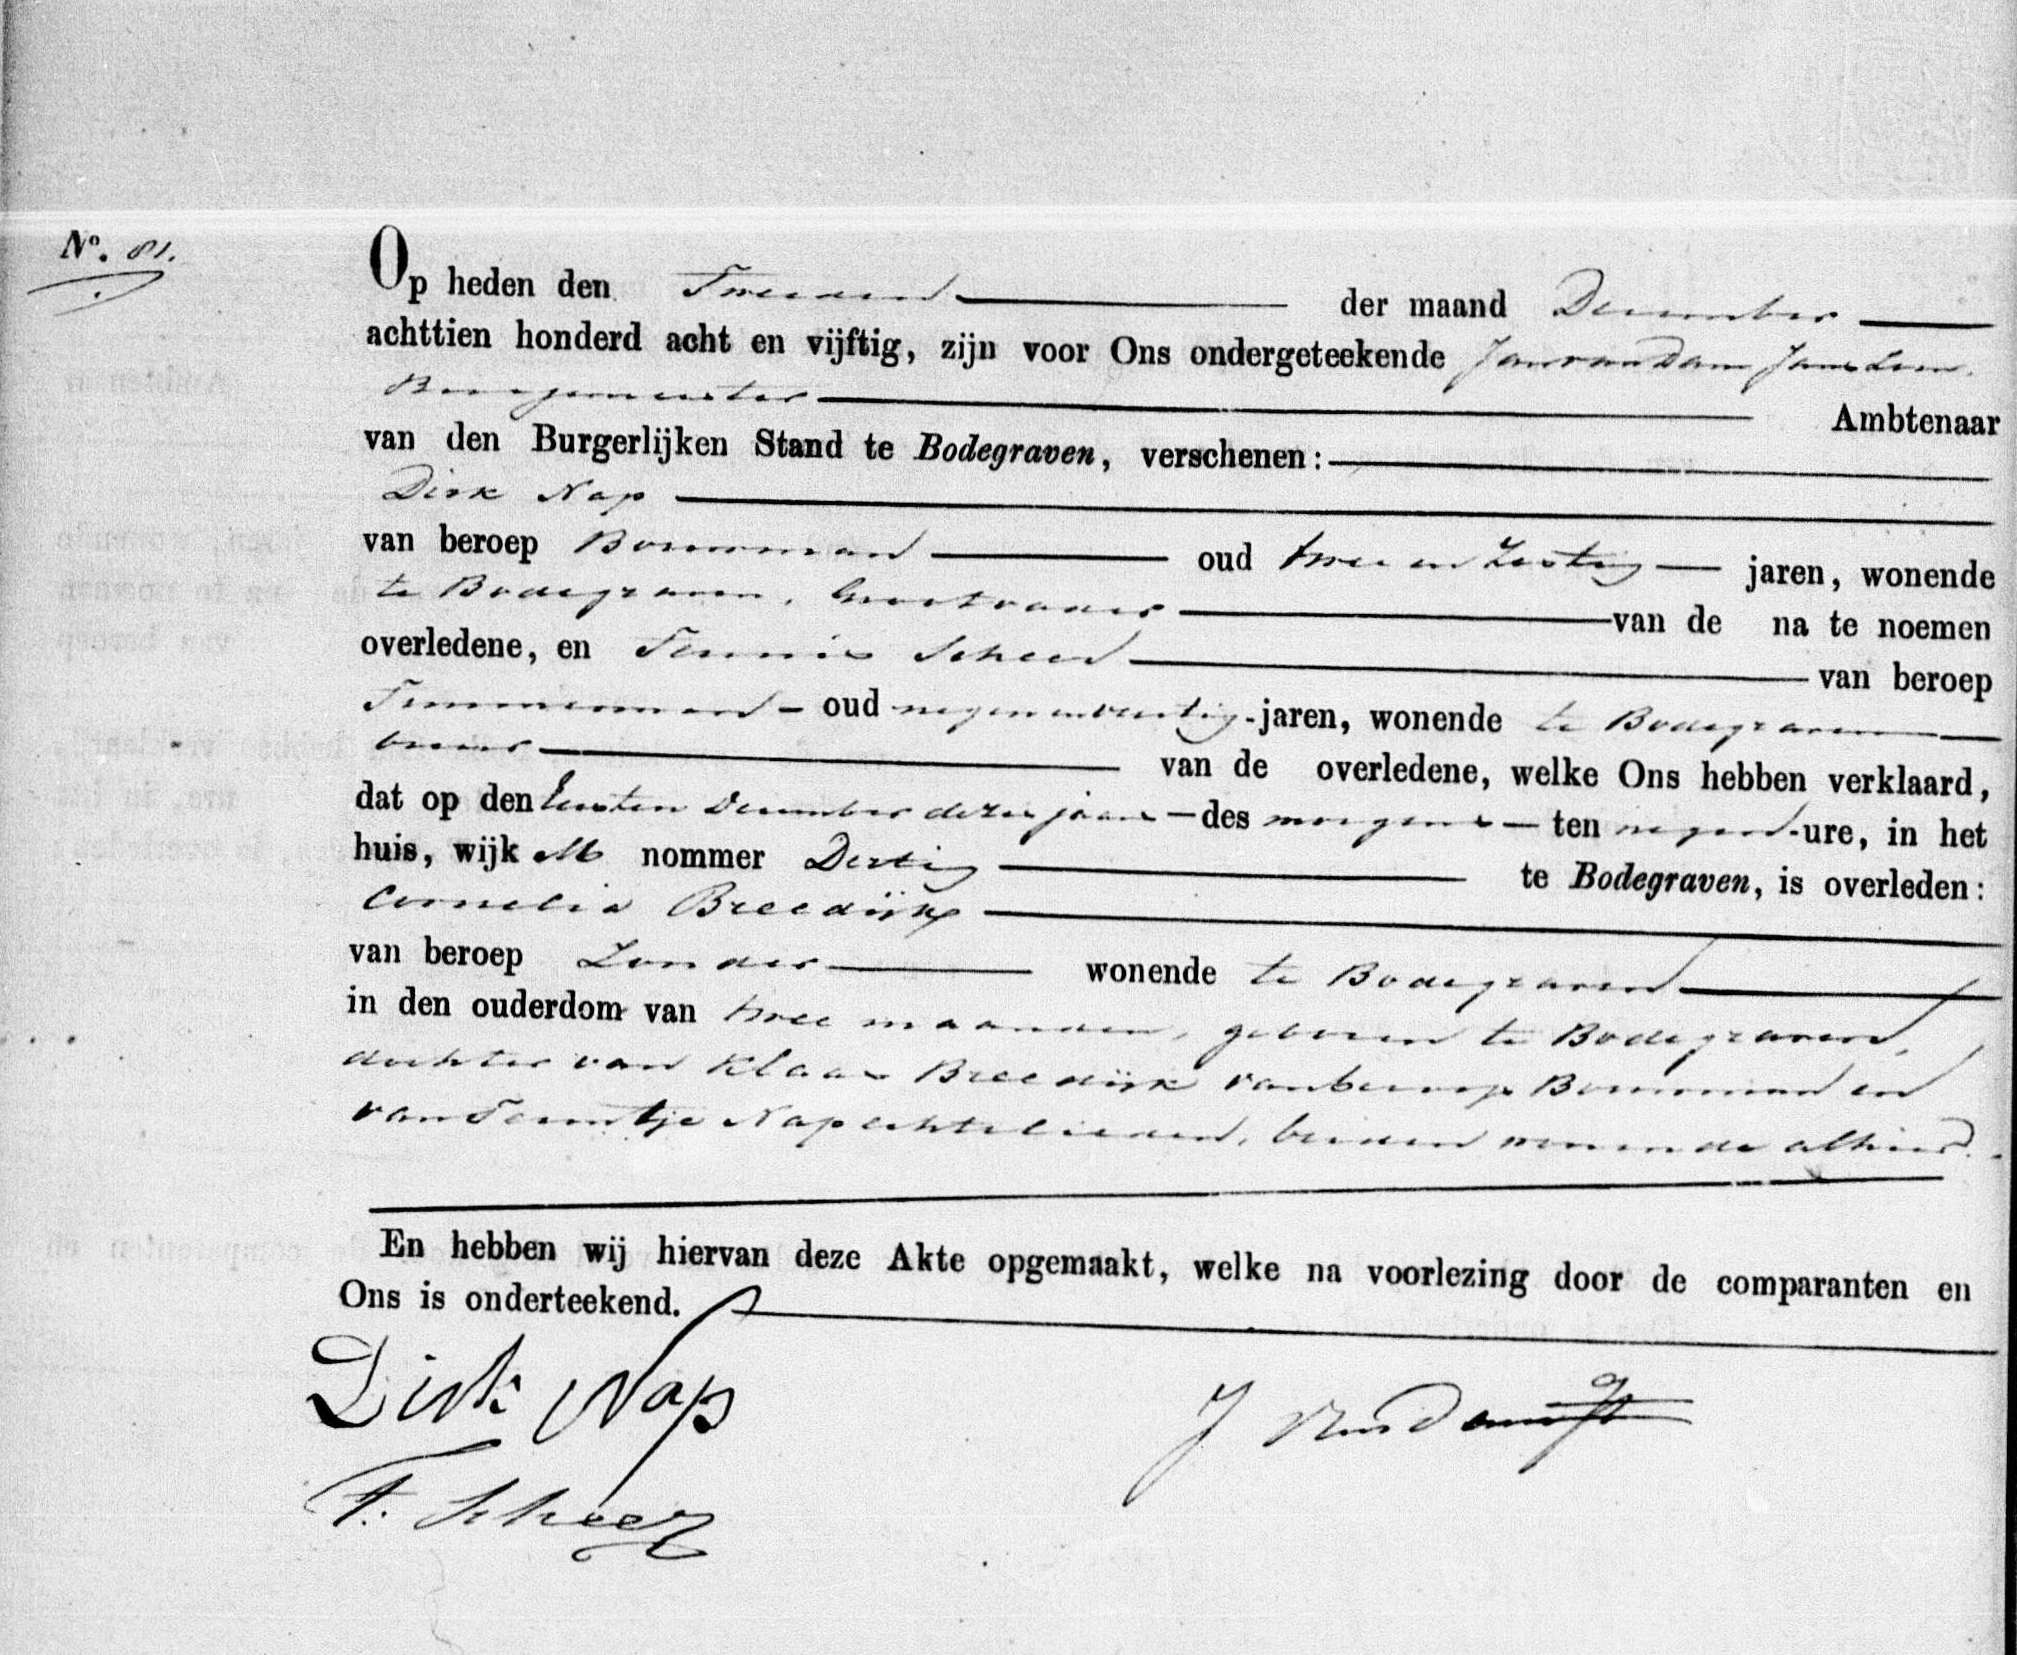 Nº. 81.
Op heden den Tweeden der maand December
achttien honderd acht en vijftig, zijn voor Ons ondergeteekende Jan van Dam Janszoon
Burgemeester Ambtenaar
van den Burgerlijken Stand te Bodegraven, verschenen:
Dirk Nap
van beroep Bouwman oud twee en Zestig jaren, wonende
te Bodegraven, Grootvader van de na te noemen
overledene, en Teunis Scheer van beroep
Timmerman oud negen en veertig jaren, wonende te Bodegraven
van de overledene, welke Ons hebben verklaard,
dat op den Eersten December dezes jaars des morgens ten negen ure, in het
huis, wijk M nommer Dertig te Bodegraven, is overleden:
Cornelia Breedijk
van beroep Zonder wonende te Bodegraven
in den ouderdom van twee maanden, geboren te Bodegraven,
dochter van Klaas Breedijk van beroep Bouwman en
van Teuntje Nap echtelieden, beiden wonende alhier.
En hebben wij hiervan deze Akte opgemaakt, welke na voorlezing door de comparanten en
Ons is onderteekend.
Dirk Nap
J van Dam
T. Scheer